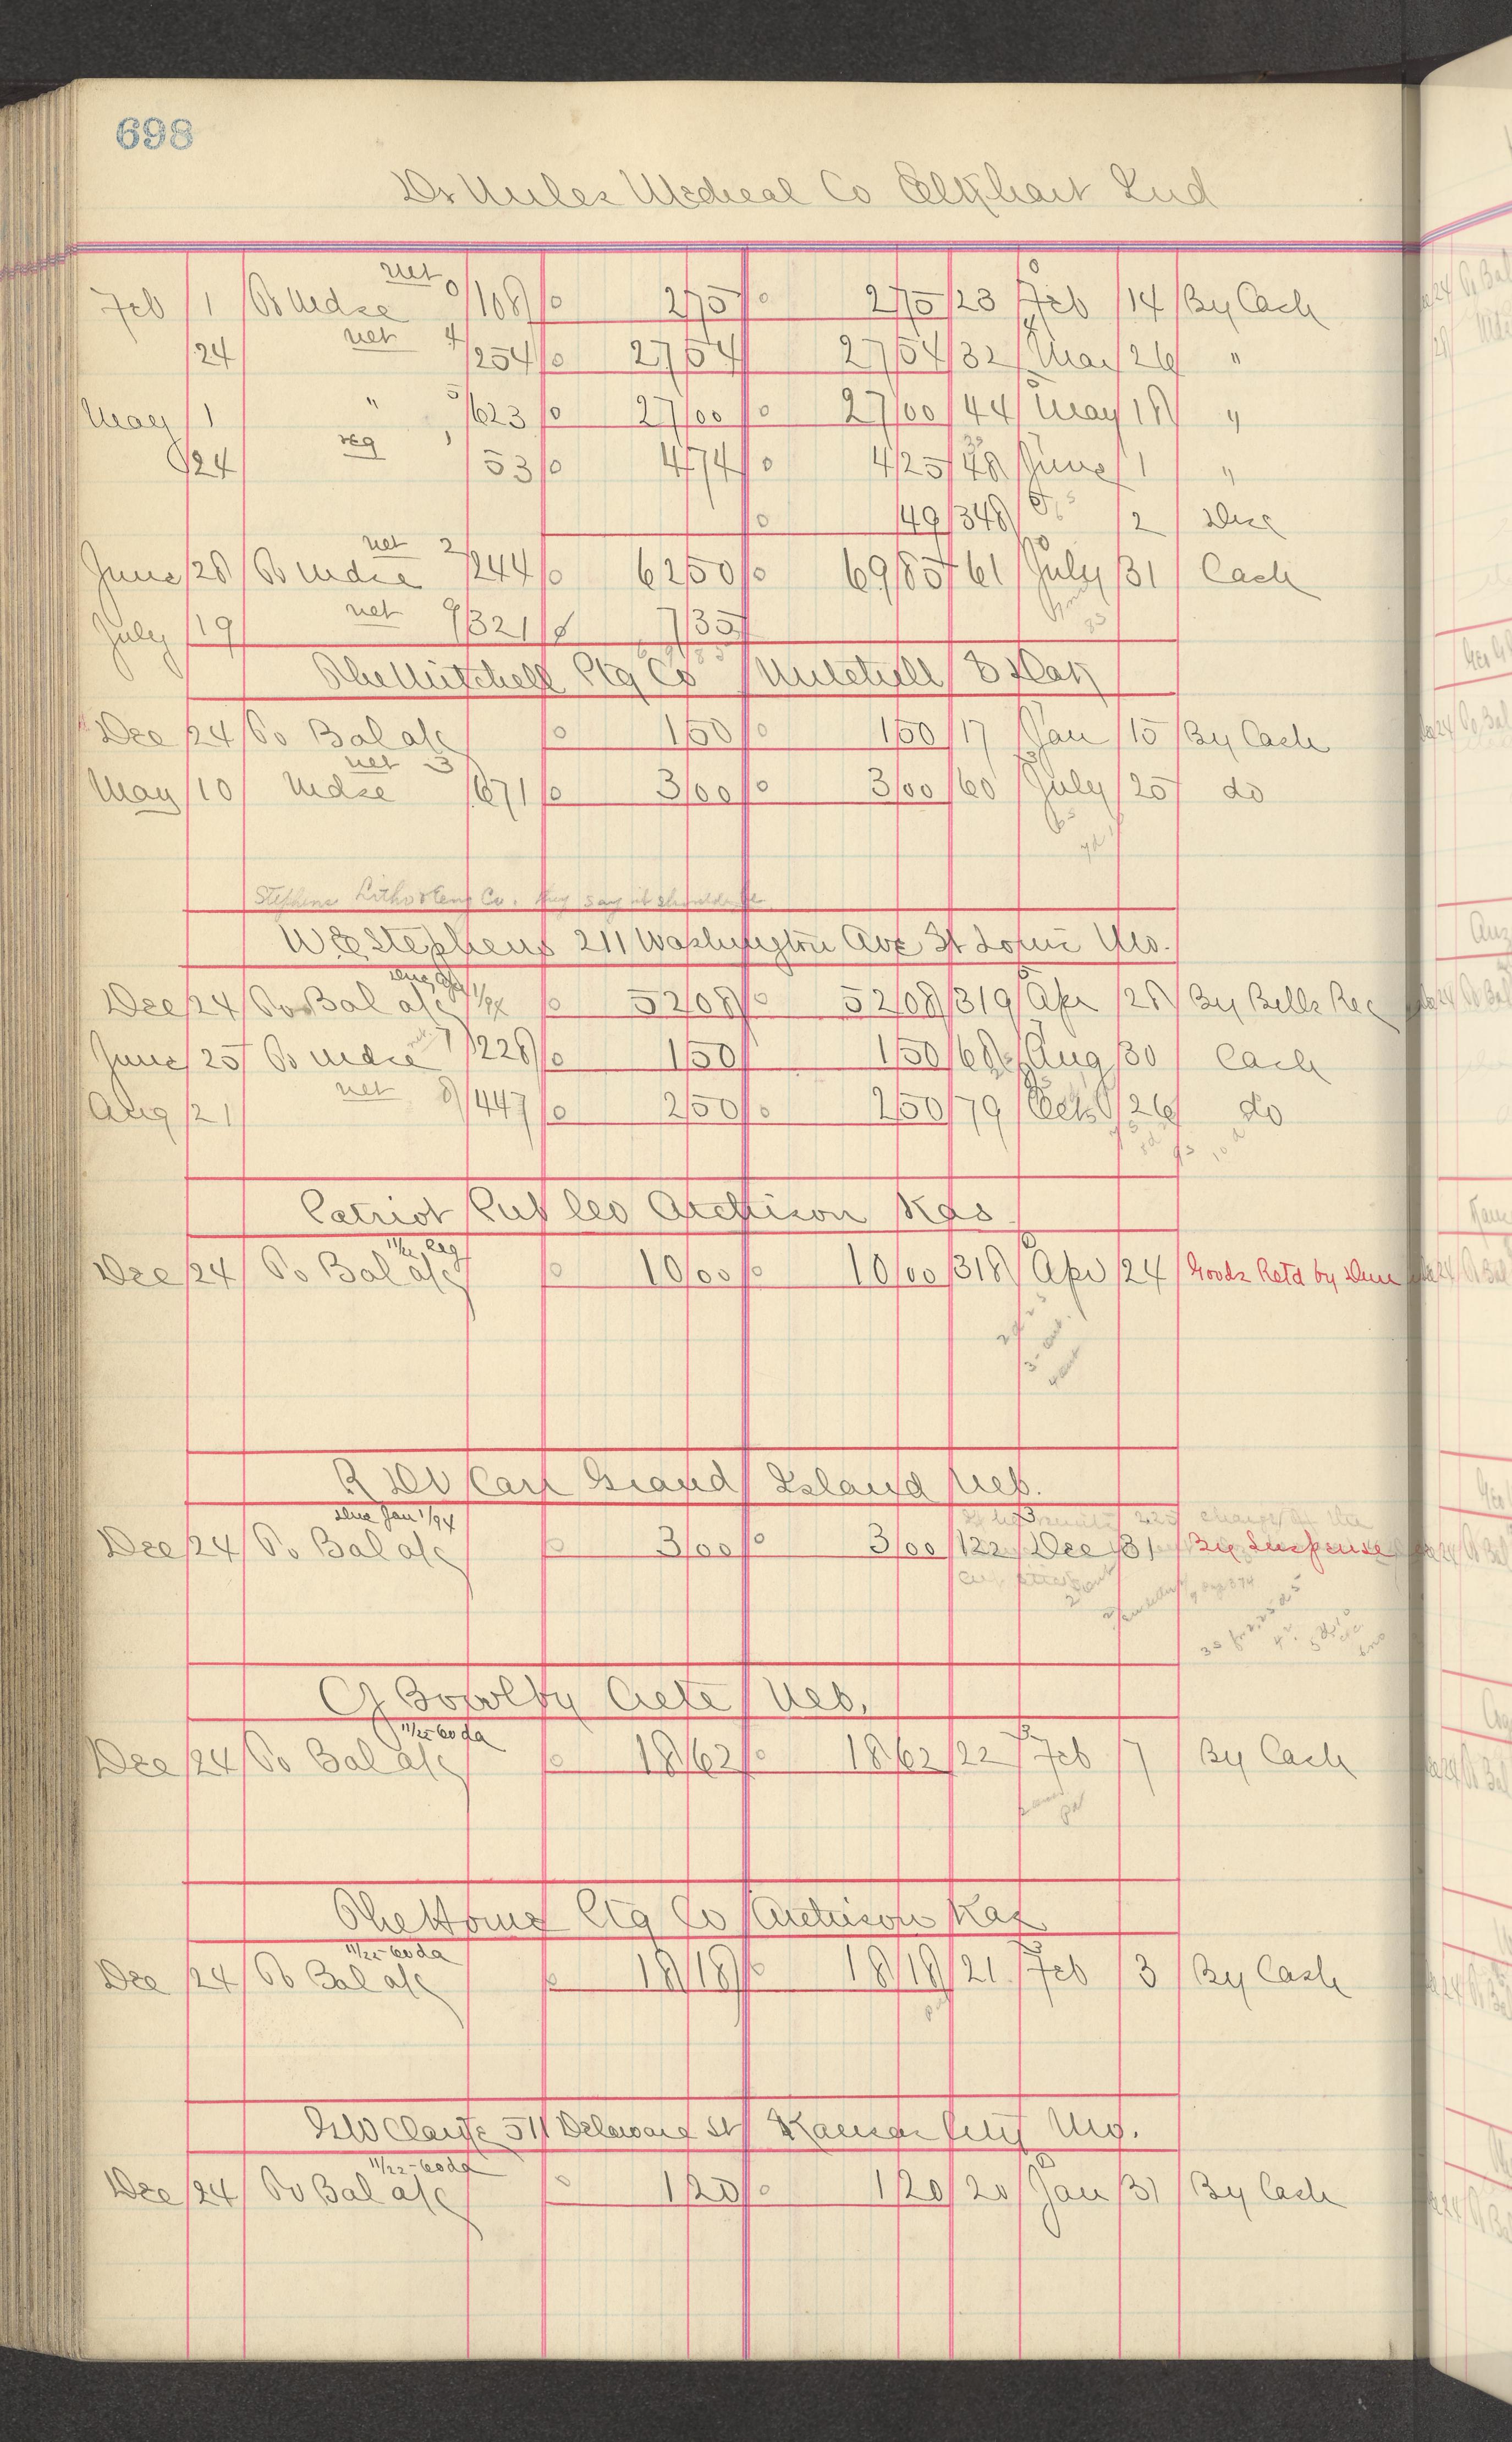 698
Dr Miles Medical Co Elkhart Ind
net
Feb 1 To Mdse 108 2 75 2 75 23 Feb 14 By Cash
net
24 4 254 27 54 27 54 32 Mar 26 "
May 1 " 5 623 27 00 27 00 44 May 18 "
reg
24 53 4 74 4 25 48 June 1 "
49 348 2 Disc
net
June 28 To Mdse 2 244 62 50 69 85 61 July 31 Cash
net
July 19 9 321 7 35
The Mitchell Ptg Co Mitchell S Dak
Dec 24 To Bal a/c 1 50 1 50 17 Jan 15 By Cash
net 3
May 10 Mdse 671 3 00 3 00 60 July 25 do
Stephens Litho & Eng Co. they say it should be
W C Stephens 211 Washington Ave St Louis Mo.
Dec 24 To Bal a/c 52 08 52 08 319 Apr 28 By Bills Rec
June 25 To Mdse 7 228 1 50 1 50 68 Aug 30 Cash
net
Aug 21 8 447 2 50 2 50 79 Oct 26 do
Patriot Pub Co Atchison Kas
11/22 Reg
Dec 24 To Bal a/c 10 00 10 00 318 Apr 24 Goods Retd by Dun
R W Carr Grand Island Neb.
Due Jan 1/94
Dec 24 To Bal a/c 3 00 3 00 122 Dec 31 By Suspense
C J Bowlby Crete Neb.
11/25 60 da
Dec 24 To Bal a/c 18 62 18 62 22 Feb 7 By Cash
The Home Ptg Co Atchison Kas
11/22 60 da
Dec 24 To Bal a/c 18 18 18 18 21 Feb 3 By Cash
511 Delaware St Kansas City Mo.
11/22-60 da
Dec 24 To Bal a/c 1 20 1 20 20 Jan 31 By Cash